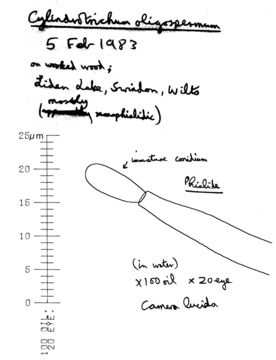 Cylindrotrichum oligospermum
5 Feb 1983
on worked wood;
Liden Lake, Swindon, Wilts
mostly
( monophialidic)
25µm
immature conidium
Phialide
20
15
10
5
0
(in water)
x100 oil x 20 eye
Camera lucida
100 OIL:
20 EYE: